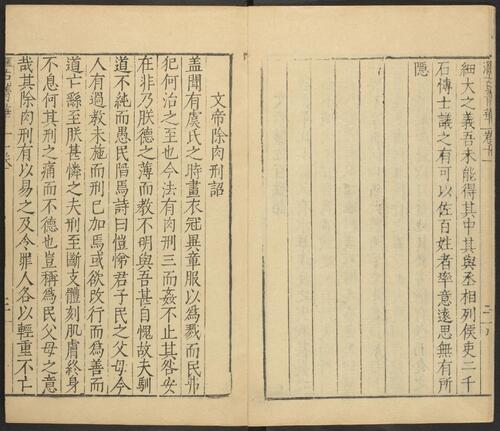 細大之義吾未能得其中其與丞相列侯吏二千
石博士議之有可以佐百姓者率意遠思無有所
隠
文帝除肉刑詔
盖聞有虞氏之時畫衣冠異章服以為戮而民弗
犯何治之至也今法有肉刑三而姦不止其咎安
在非乃朕德之薄而教不明與吾甚自愧故夫馴
道不純而愚民陷焉詩曰愷悌君子民之父母今
人有過教未施而刑已加焉或欲改行而為善而
道亡繇至朕甚憐之夫刑至斷支體刻肌膚終身
不息何其刑之痛而不德也豈稱為民父母之意
哉其除肉刑有以易之及令罪人各以輕重不亡